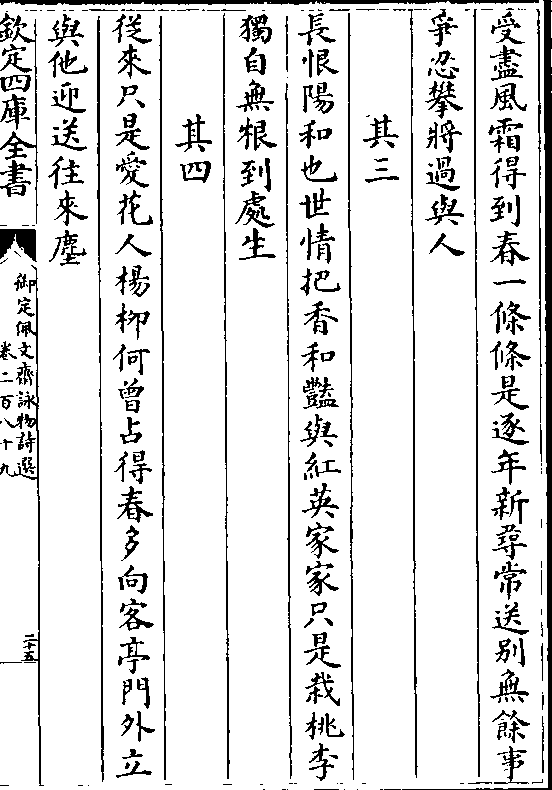 受盡風霜得到春一條條是逐年新尋常送别無餘事
爭忍攀將過與人
其三
長恨陽和也世情把香和豔與紅英家家只是栽桃李
獨自無根到處生
其四
從來只是愛花人楊栁何曾占得春多向客亭門外立
與他迎送往來塵
欽定四庫全書
御定佩文齋詠物詩選
卷二百八十九
二十五